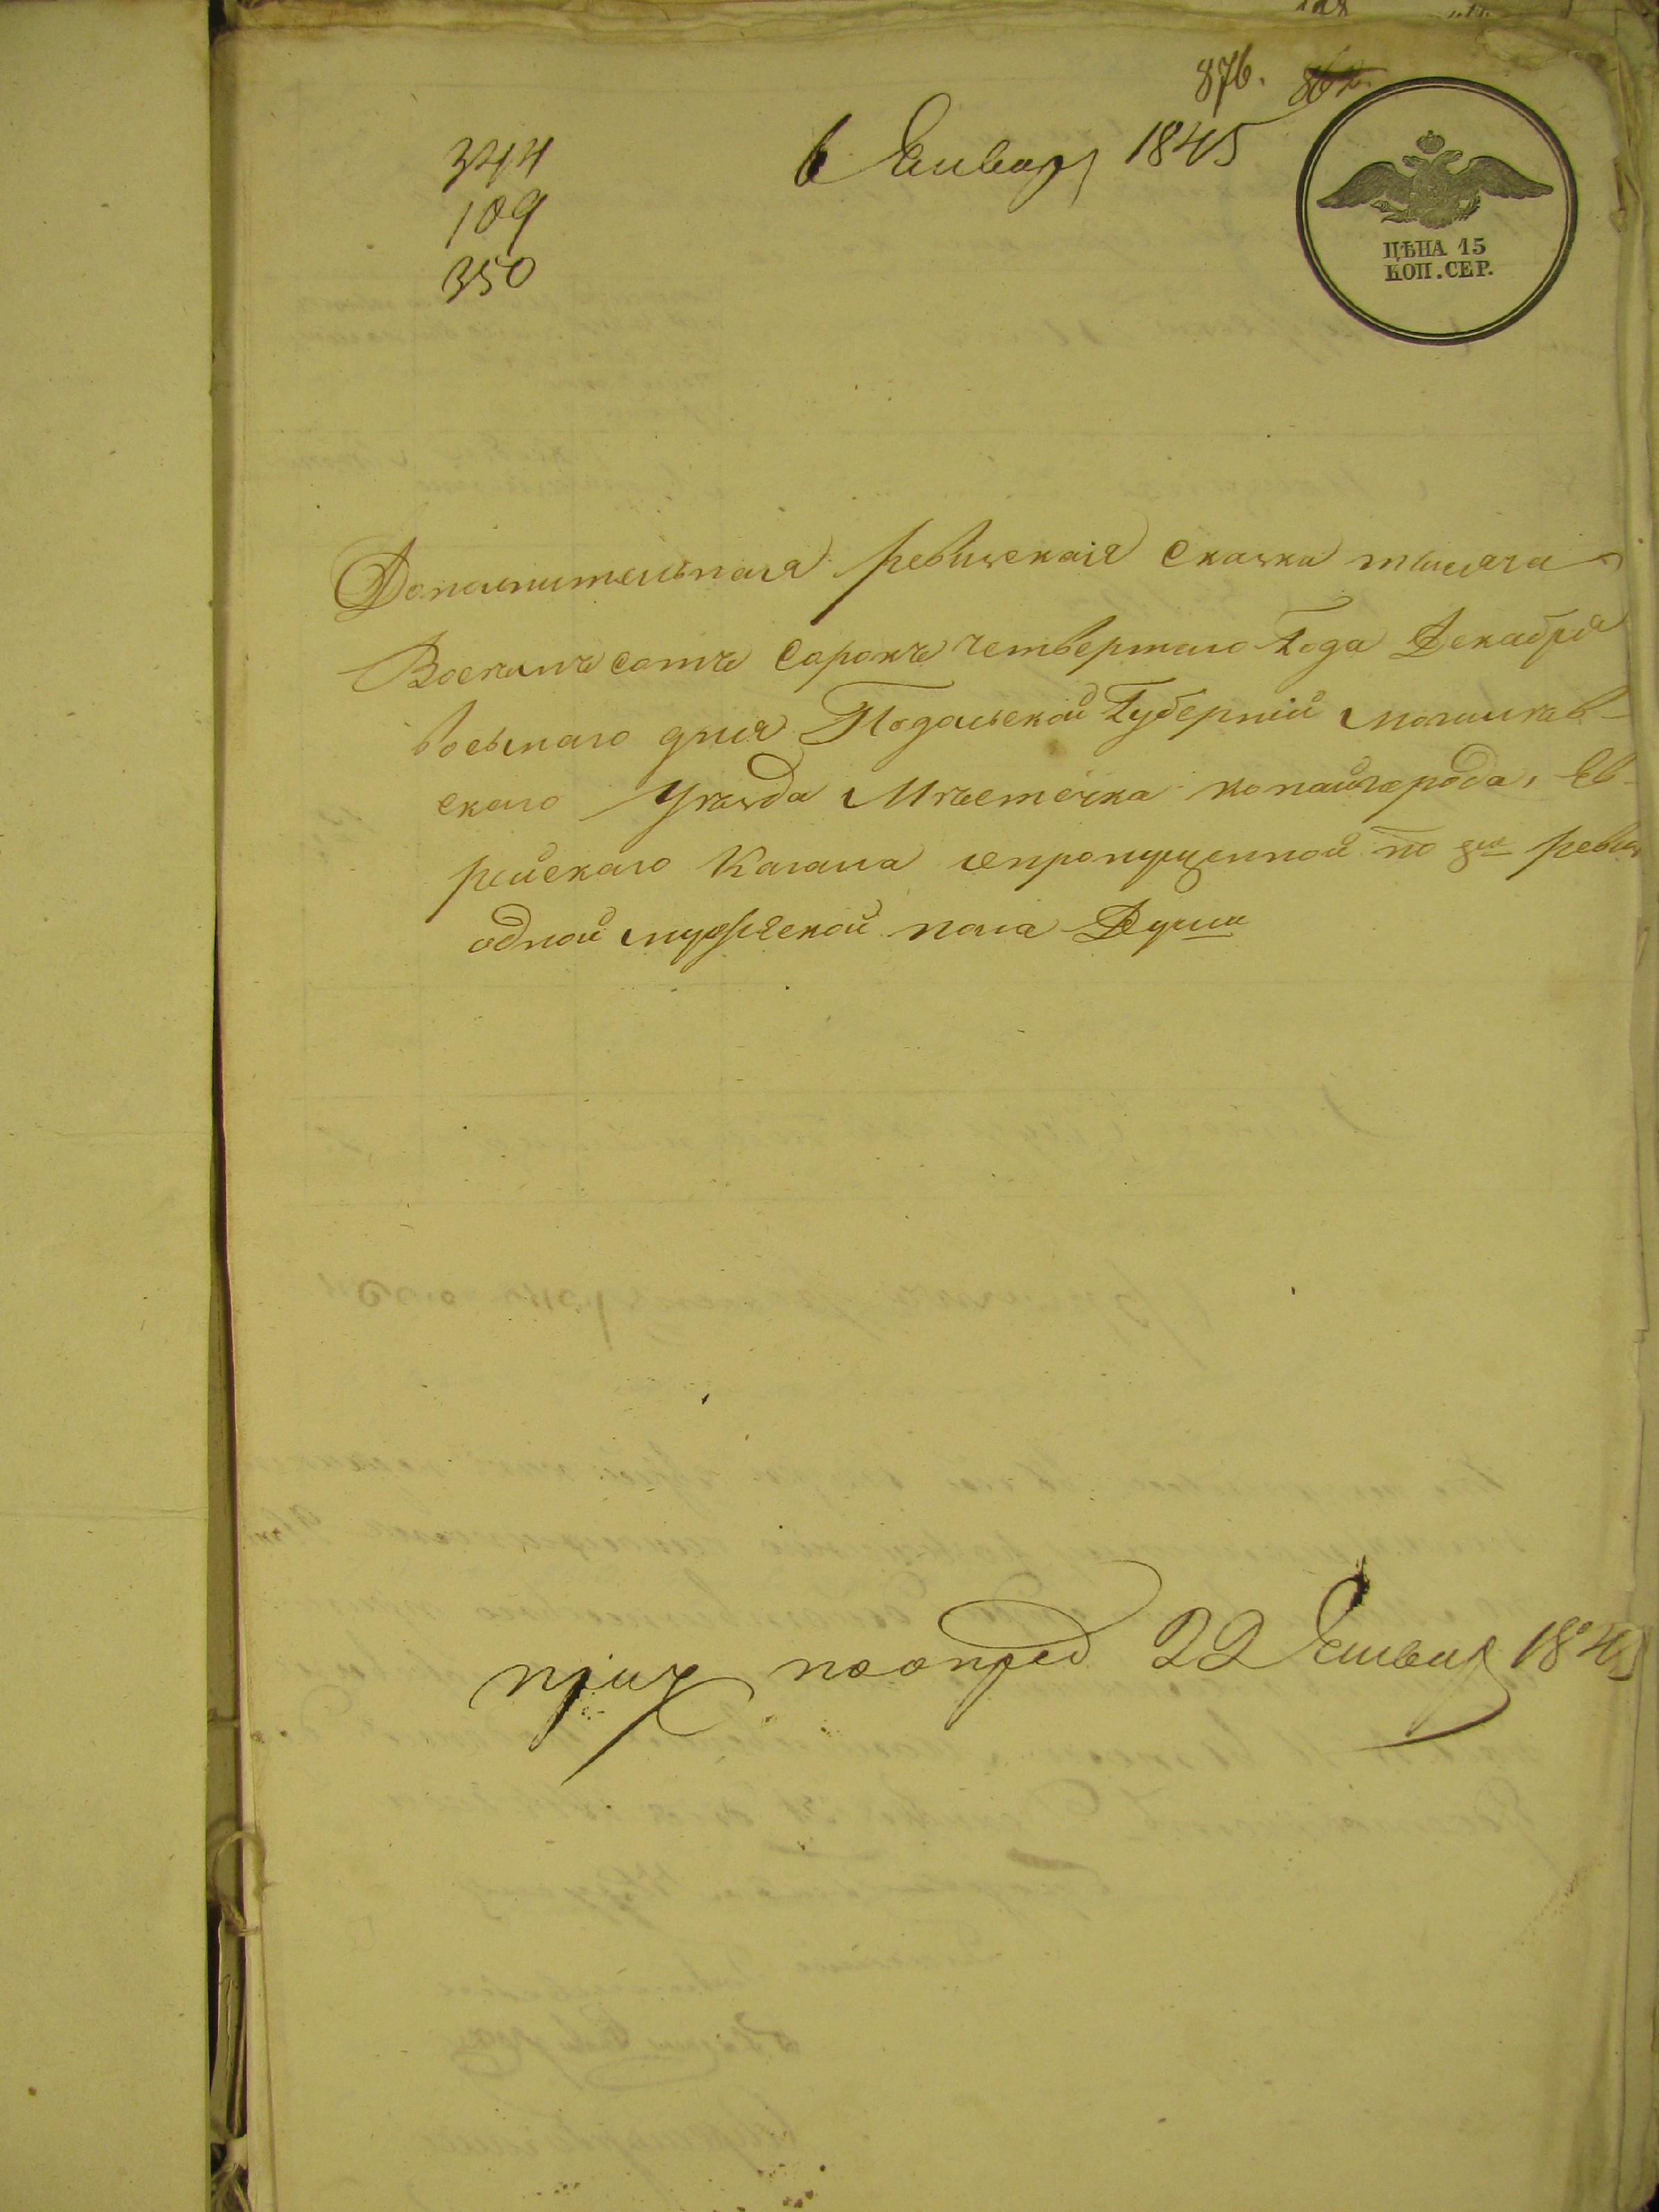 876. 862.
6 Январ 1845
344
109
350
ЦѢНА 15
КОП. СЕР.
Дополнительная ревизская Сказка тысяча
Восемъ сотъ Сорокъ четвертаго Года Декабря
восьмаго дня Подольской Губерніи могилев-
скаго Уѣзда Мѣстечка копайгорода, Ев-
рейскаго Кагала о пропущенной по 8й реви
одной мужеской пола Души
поопред 22 Январ 1845